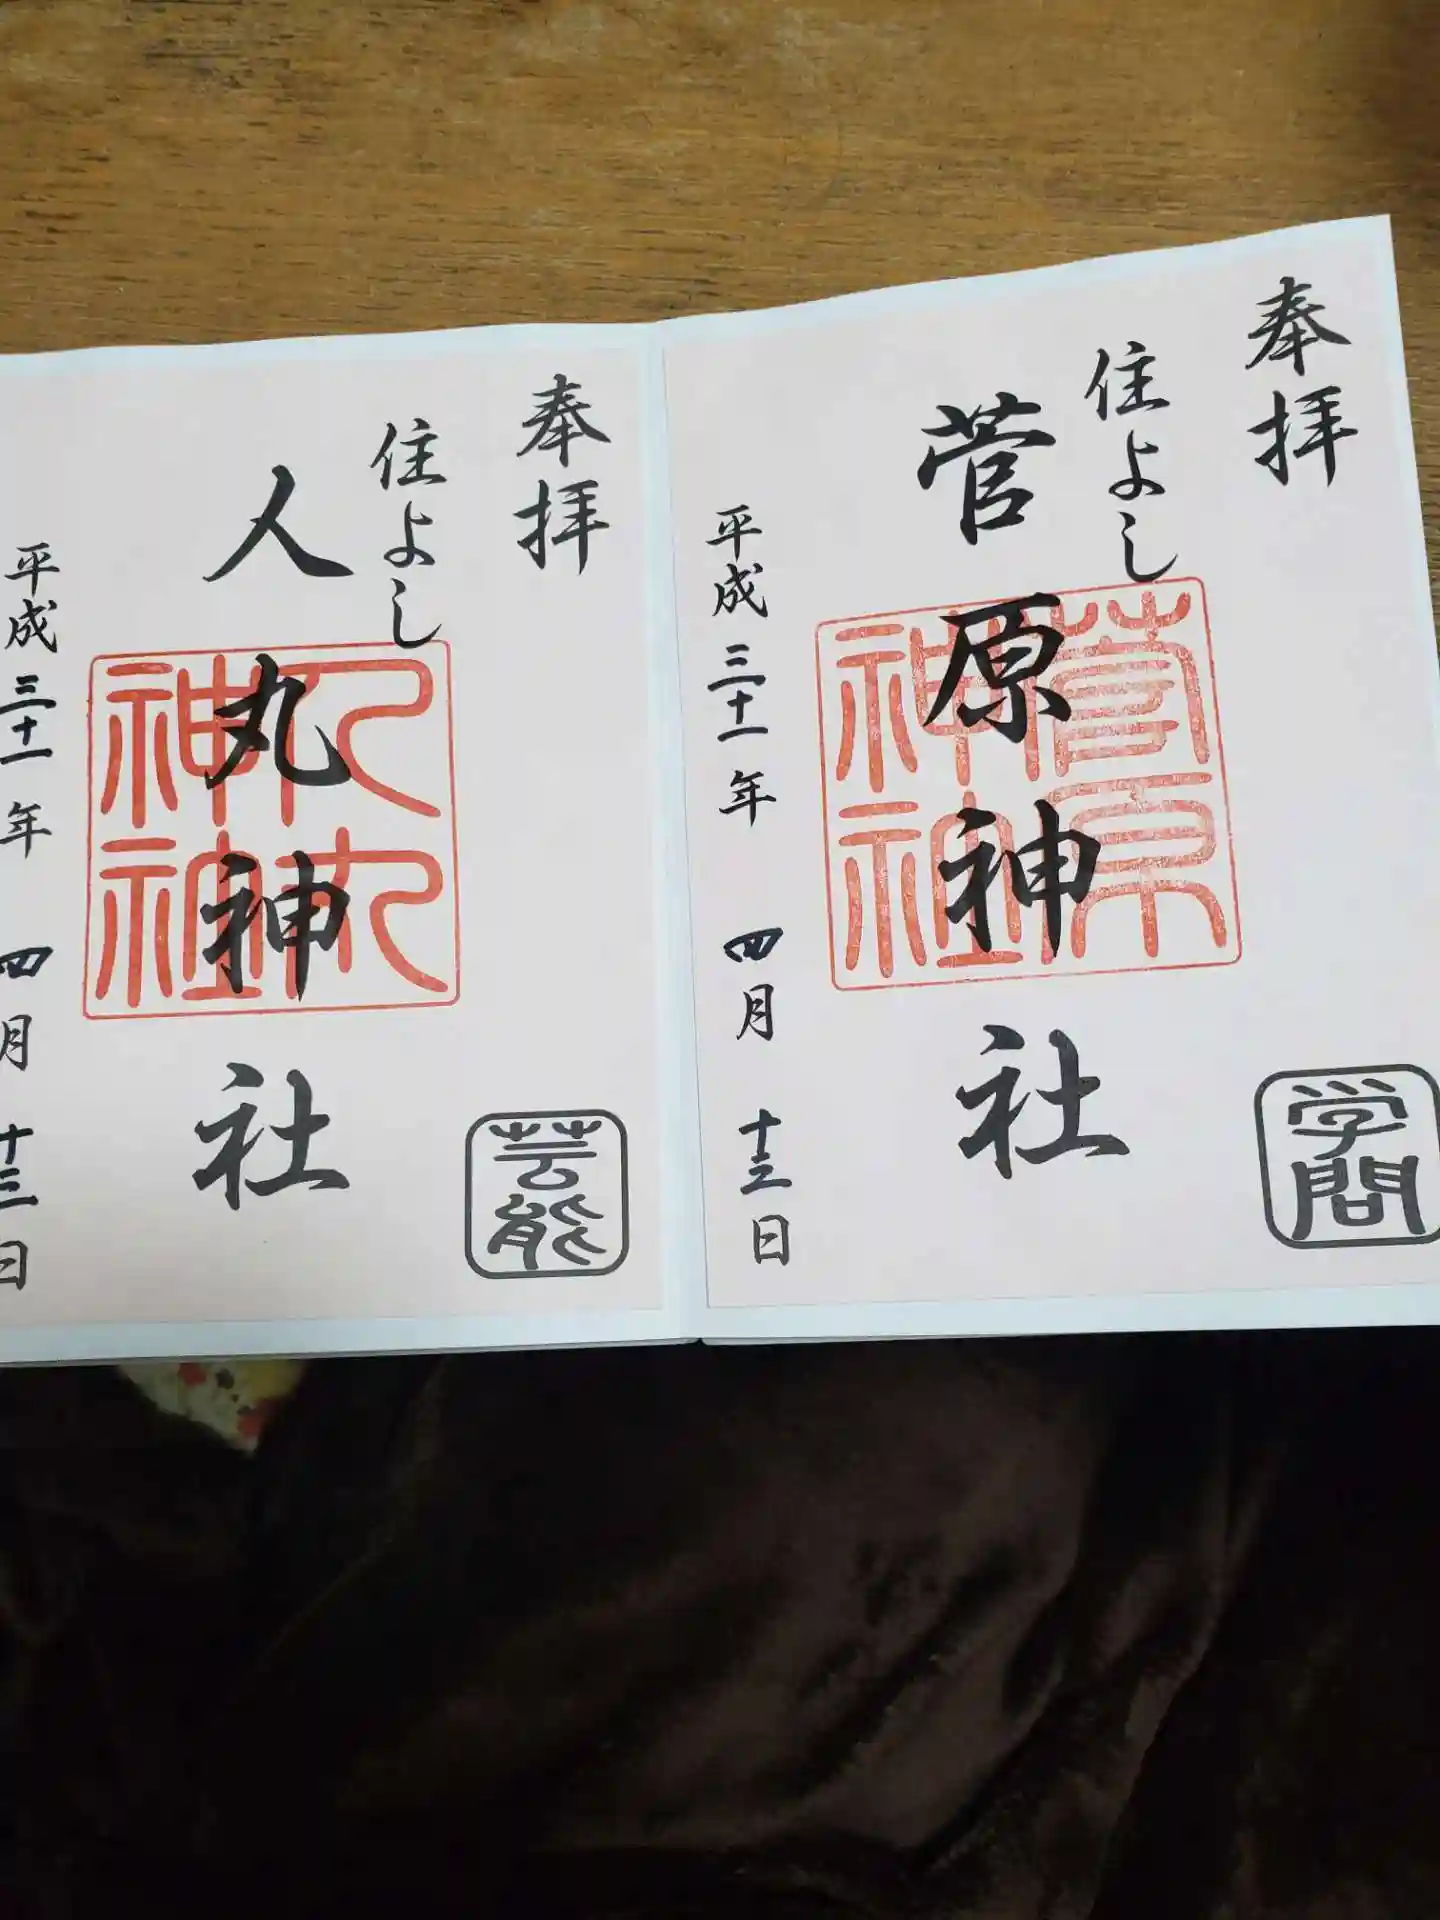 奉拝
住よし
菅原神社
菅原神社
平成三十一年 四月 十三日
学問
奉拝
住よし
人丸神社
人丸神社
平成三十一年 四月 十三日
芸能